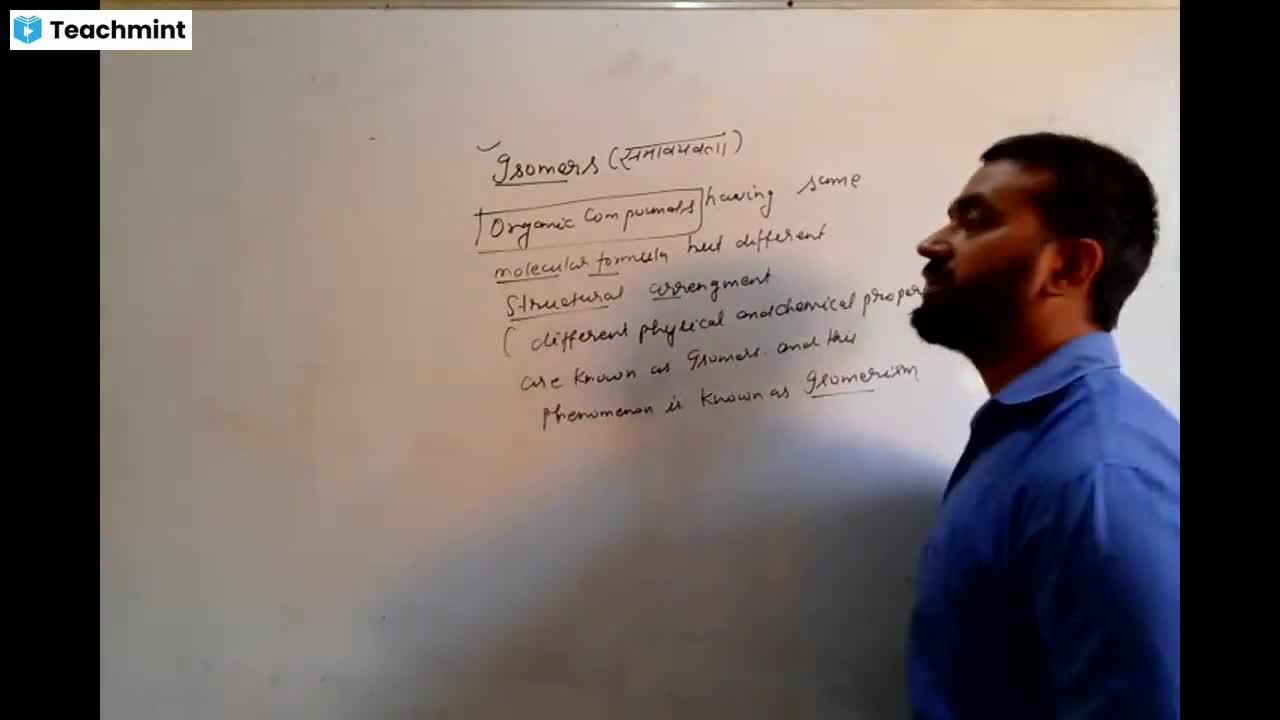 Teachmint
Isomers (समावयवता)
Organic compounds having same
molecular formula but different
structural arrengment
( different physical and chemical proper
are known as Isomers. and this
phenomenon is known as Isomerism